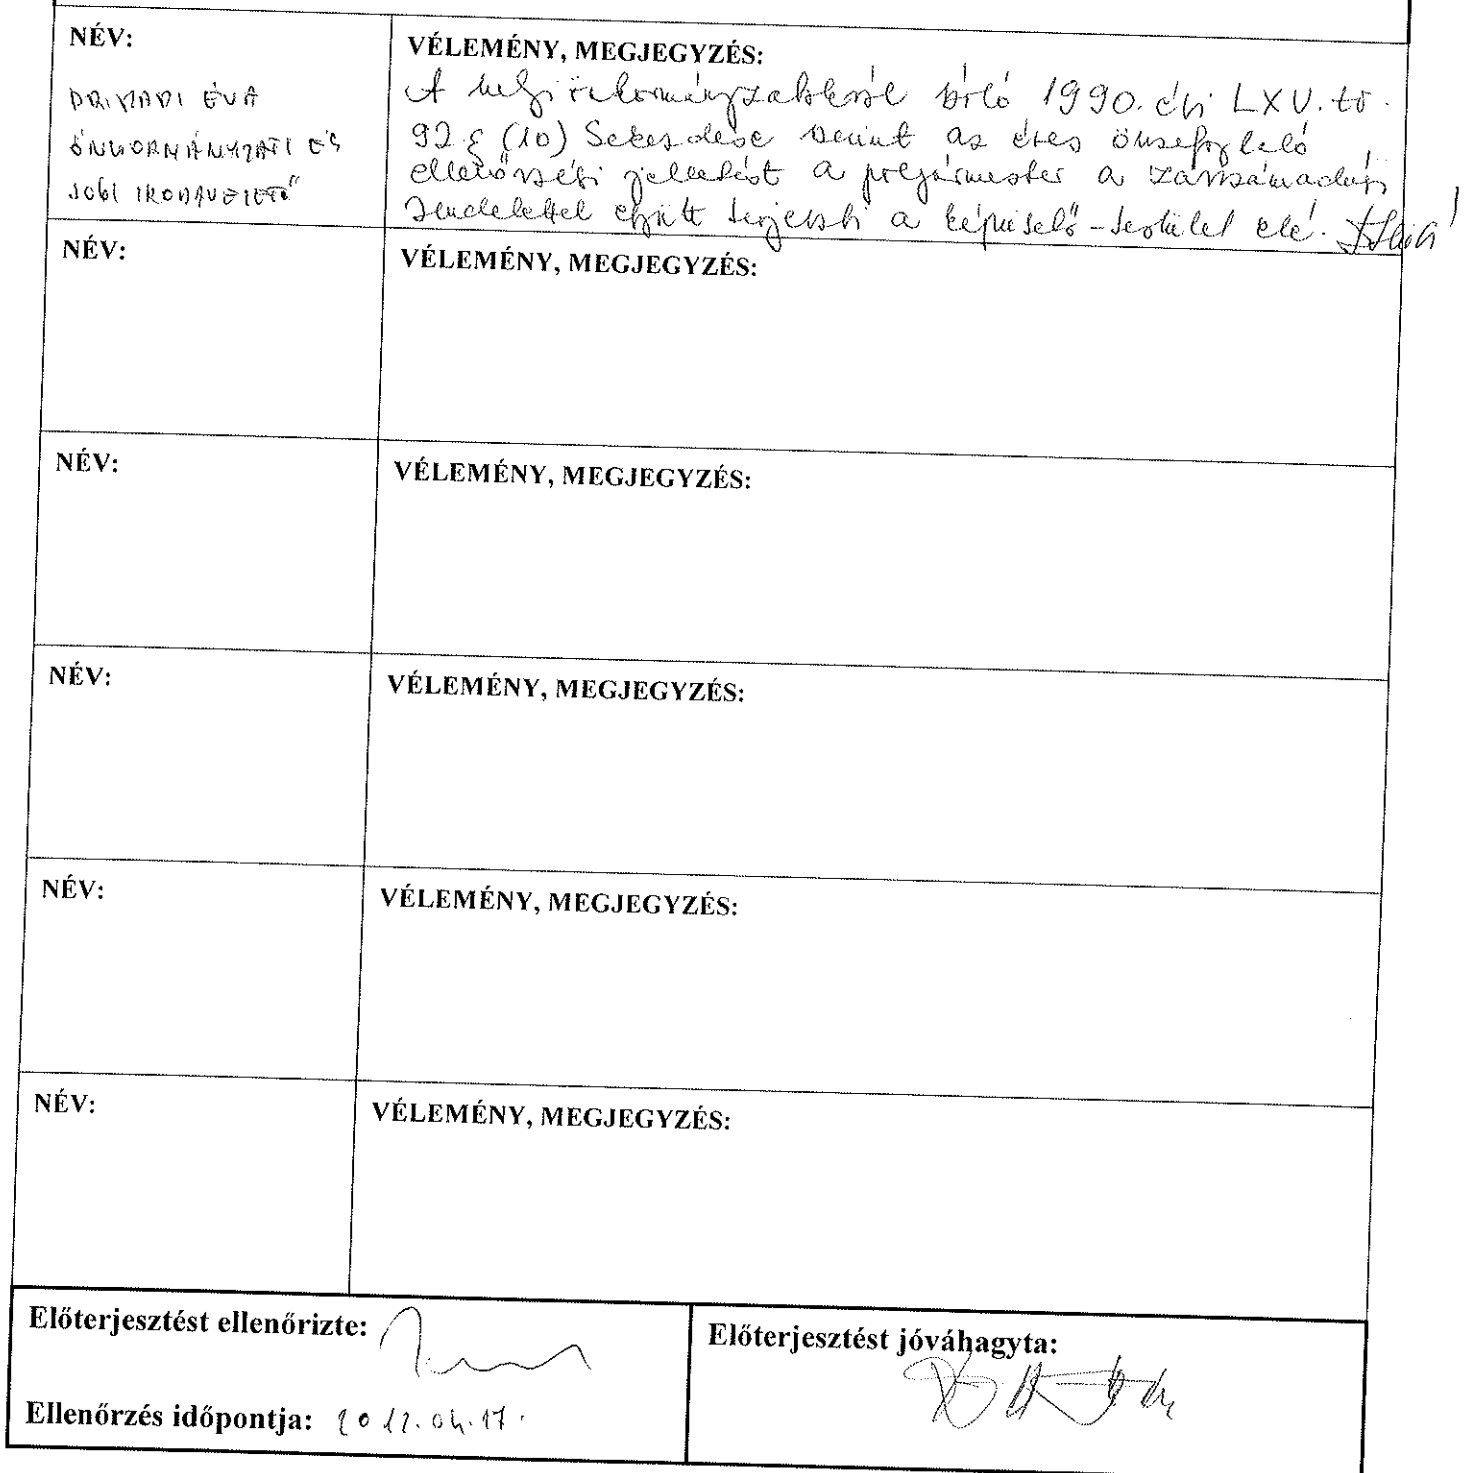 NÉV:
VÉLEMÉNY, MEGJEGYZÉS:
ÉVA
ÖNKORMÁNYZATI ÉS
JOGI IRODAVEZETŐ
A helyi önkormányzatokról szóló 1990. évi LXV. tv.
92 § (10) bekezdése szerint az éves összefoglaló
ellenőrzési jelentést a polgármester a zárszámadási
rendelettel együtt terjeszti a képviselő-testület elé.
NÉV:
VÉLEMÉNY, MEGJEGYZÉS:
NÉV:
VÉLEMÉNY, MEGJEGYZÉS:
NÉV:
VÉLEMÉNY, MEGJEGYZÉS:
NÉV:
VÉLEMÉNY, MEGJEGYZÉS:
NÉV:
VÉLEMÉNY, MEGJEGYZÉS:
Előterjesztést ellenőrizte:
Ellenőrzés időpontja: 2012.04.17.
Előterjesztést jóváhagyta: